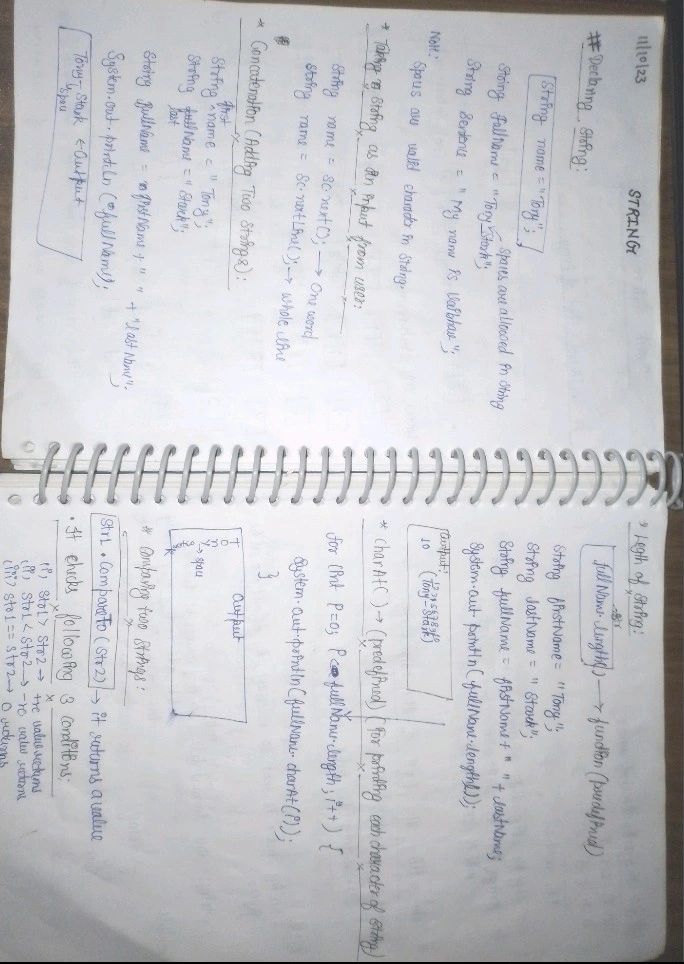 11/10/23
STRING
# Declaring String:
String name = "Tony";
String fullname = "Tony Stark"; spaces are allowed in string
String sentence = "My name is Vaibhav";
Note:
Spaces are valid character in String.
* Taking a string as an input from user:
String name = sc.next(); → One word
String name = sc.nextLine(); → whole line
* Concatenation (Adding Two Strings):
String first name = "Tony";
String last Name = "Stark";
String fullName = firstName + " " + "lastName";
System.out.println(fullName);
Tony Stark ← Output
space
* length of string:
fullName.length() → function (predefined)
String firstName = "Tony";
String lastName = "Stark";
String fullName = firstName + " " + lastName;
System.out.println(fullName.length());
Output:
10 (Tony Stark)
* charAt() → (predefined) (for printing each character of string)
for (int i=0; i< fullName.length; i++) {
System.out.println(fullName.charAt(i));
}
Output
T
o
n
y
* Comparing two strings:
str1.compareTo(str2) → it returns a value
• It checks following 3 conditions:
(i), str1 > str2 → +ve value returns
(ii), str1 < str2 → -ve value returns
(iii), str1 == str2 → 0 returns